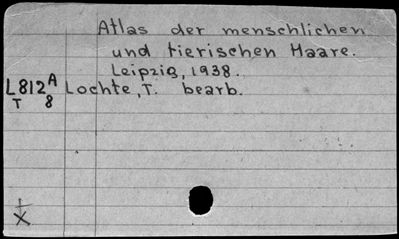 Atlas der menschlichen
und tierischen Haare.
Leipzig, 1938.
L812A Lochte, T. bearb.
T 8
X